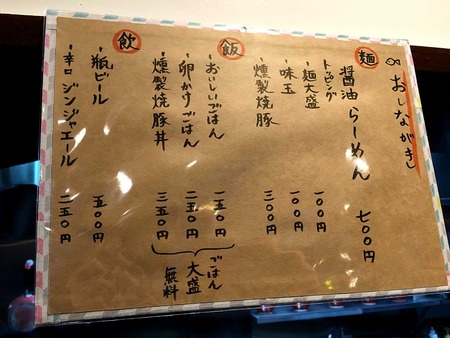 おしながき
麺
醤油らーめん 七〇〇円
トッピング
・麺大盛 一〇〇円
・味玉 一〇〇円
・燻製焼豚 三〇〇円
飯
・おいしいごはん 一五〇円
・卵かけごはん 二五〇円
・燻製焼豚丼 三五〇円
ごはん
大盛
無料
飲
・瓶ビール 五〇〇円
・辛口ジンジャエール 二五〇円